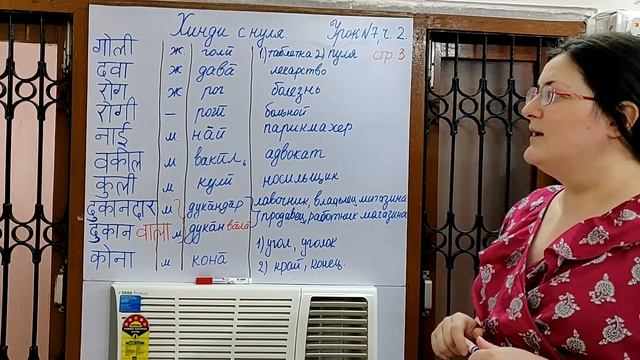 Хинди с нуля. Урок N7, ч. 2.
стр. 3
गोली ж. голӣ 1) таблетка 2) пуля
दवा ж давā лекарство
रोग ж рог болезнь
रोगी – рогӣ больной
नाई м. нāӣ парикмахер
वकील м вакӣл, адвокат
कुली м кулӣ носильщик
दुकानदार м дукāндāр лавочник, владелец магазина
दुकान वाला м. дукāн вāлā продавец, работник магазина
कोना м конā 1) угол, уголок
2) край, конец.